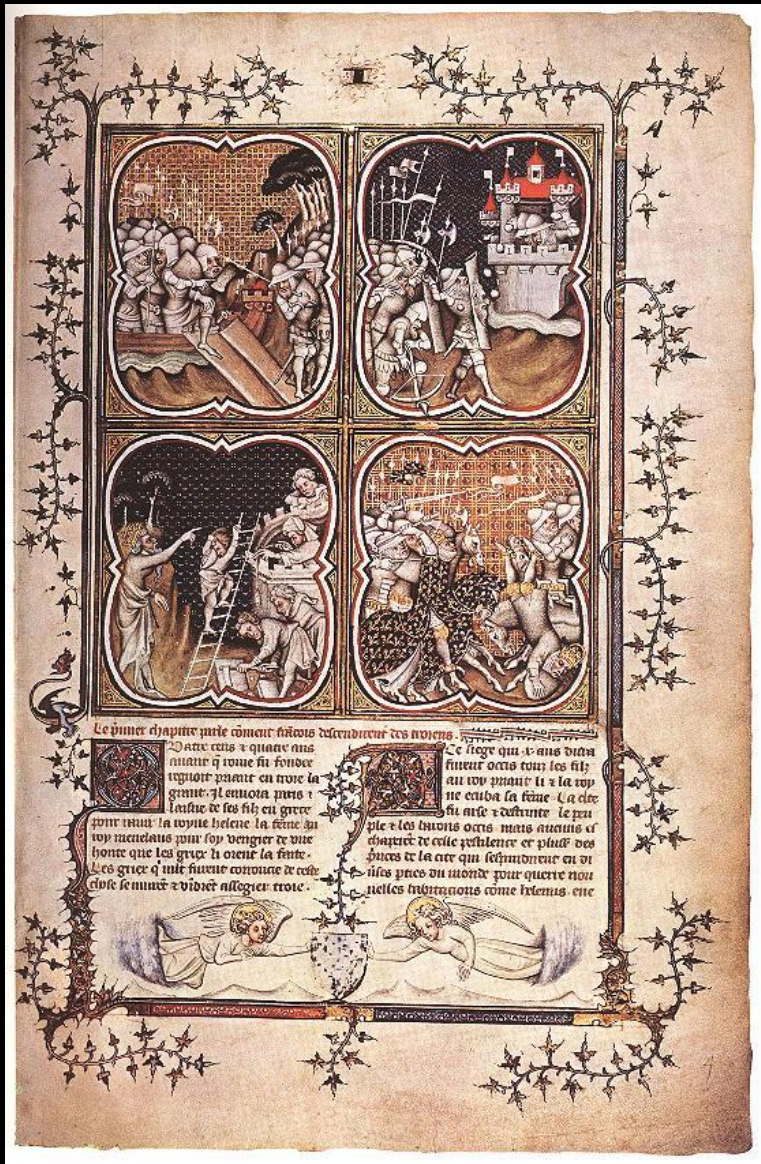 Le p̃mier chapitre parle cõment frãcois descendirent des troyens.
Quatre cens ⁊ quatre ans
auant q̃ rome fu fondee
regnoit priant en troie la
grant. Il enuoia paris ⁊
laisne de ses filz en grece
pour rauir la royne helene la fẽme au
roy menelaus pour soy vengier de vne
honte que les griex li orent la faite.
Les griex q̃ mlt furent courouciez de ceste
chose se murẽt ⁊ vĩdrẽt assegier troie.
Ce siege qui .x. ans dura
furent occis tous les filz
au roy priant li ⁊ la roy
ne ecuba sa fẽme. La cite
fu arse ⁊ destruite le peu
ple ⁊ les barons occis mais aucuns es
chaperẽt de celle pestilence et plus͛s des
p̃nces de la cite qui sespandirent en di
u͛ses pties du monde pour querre nou
uelles habitacions cõme helenus. ene